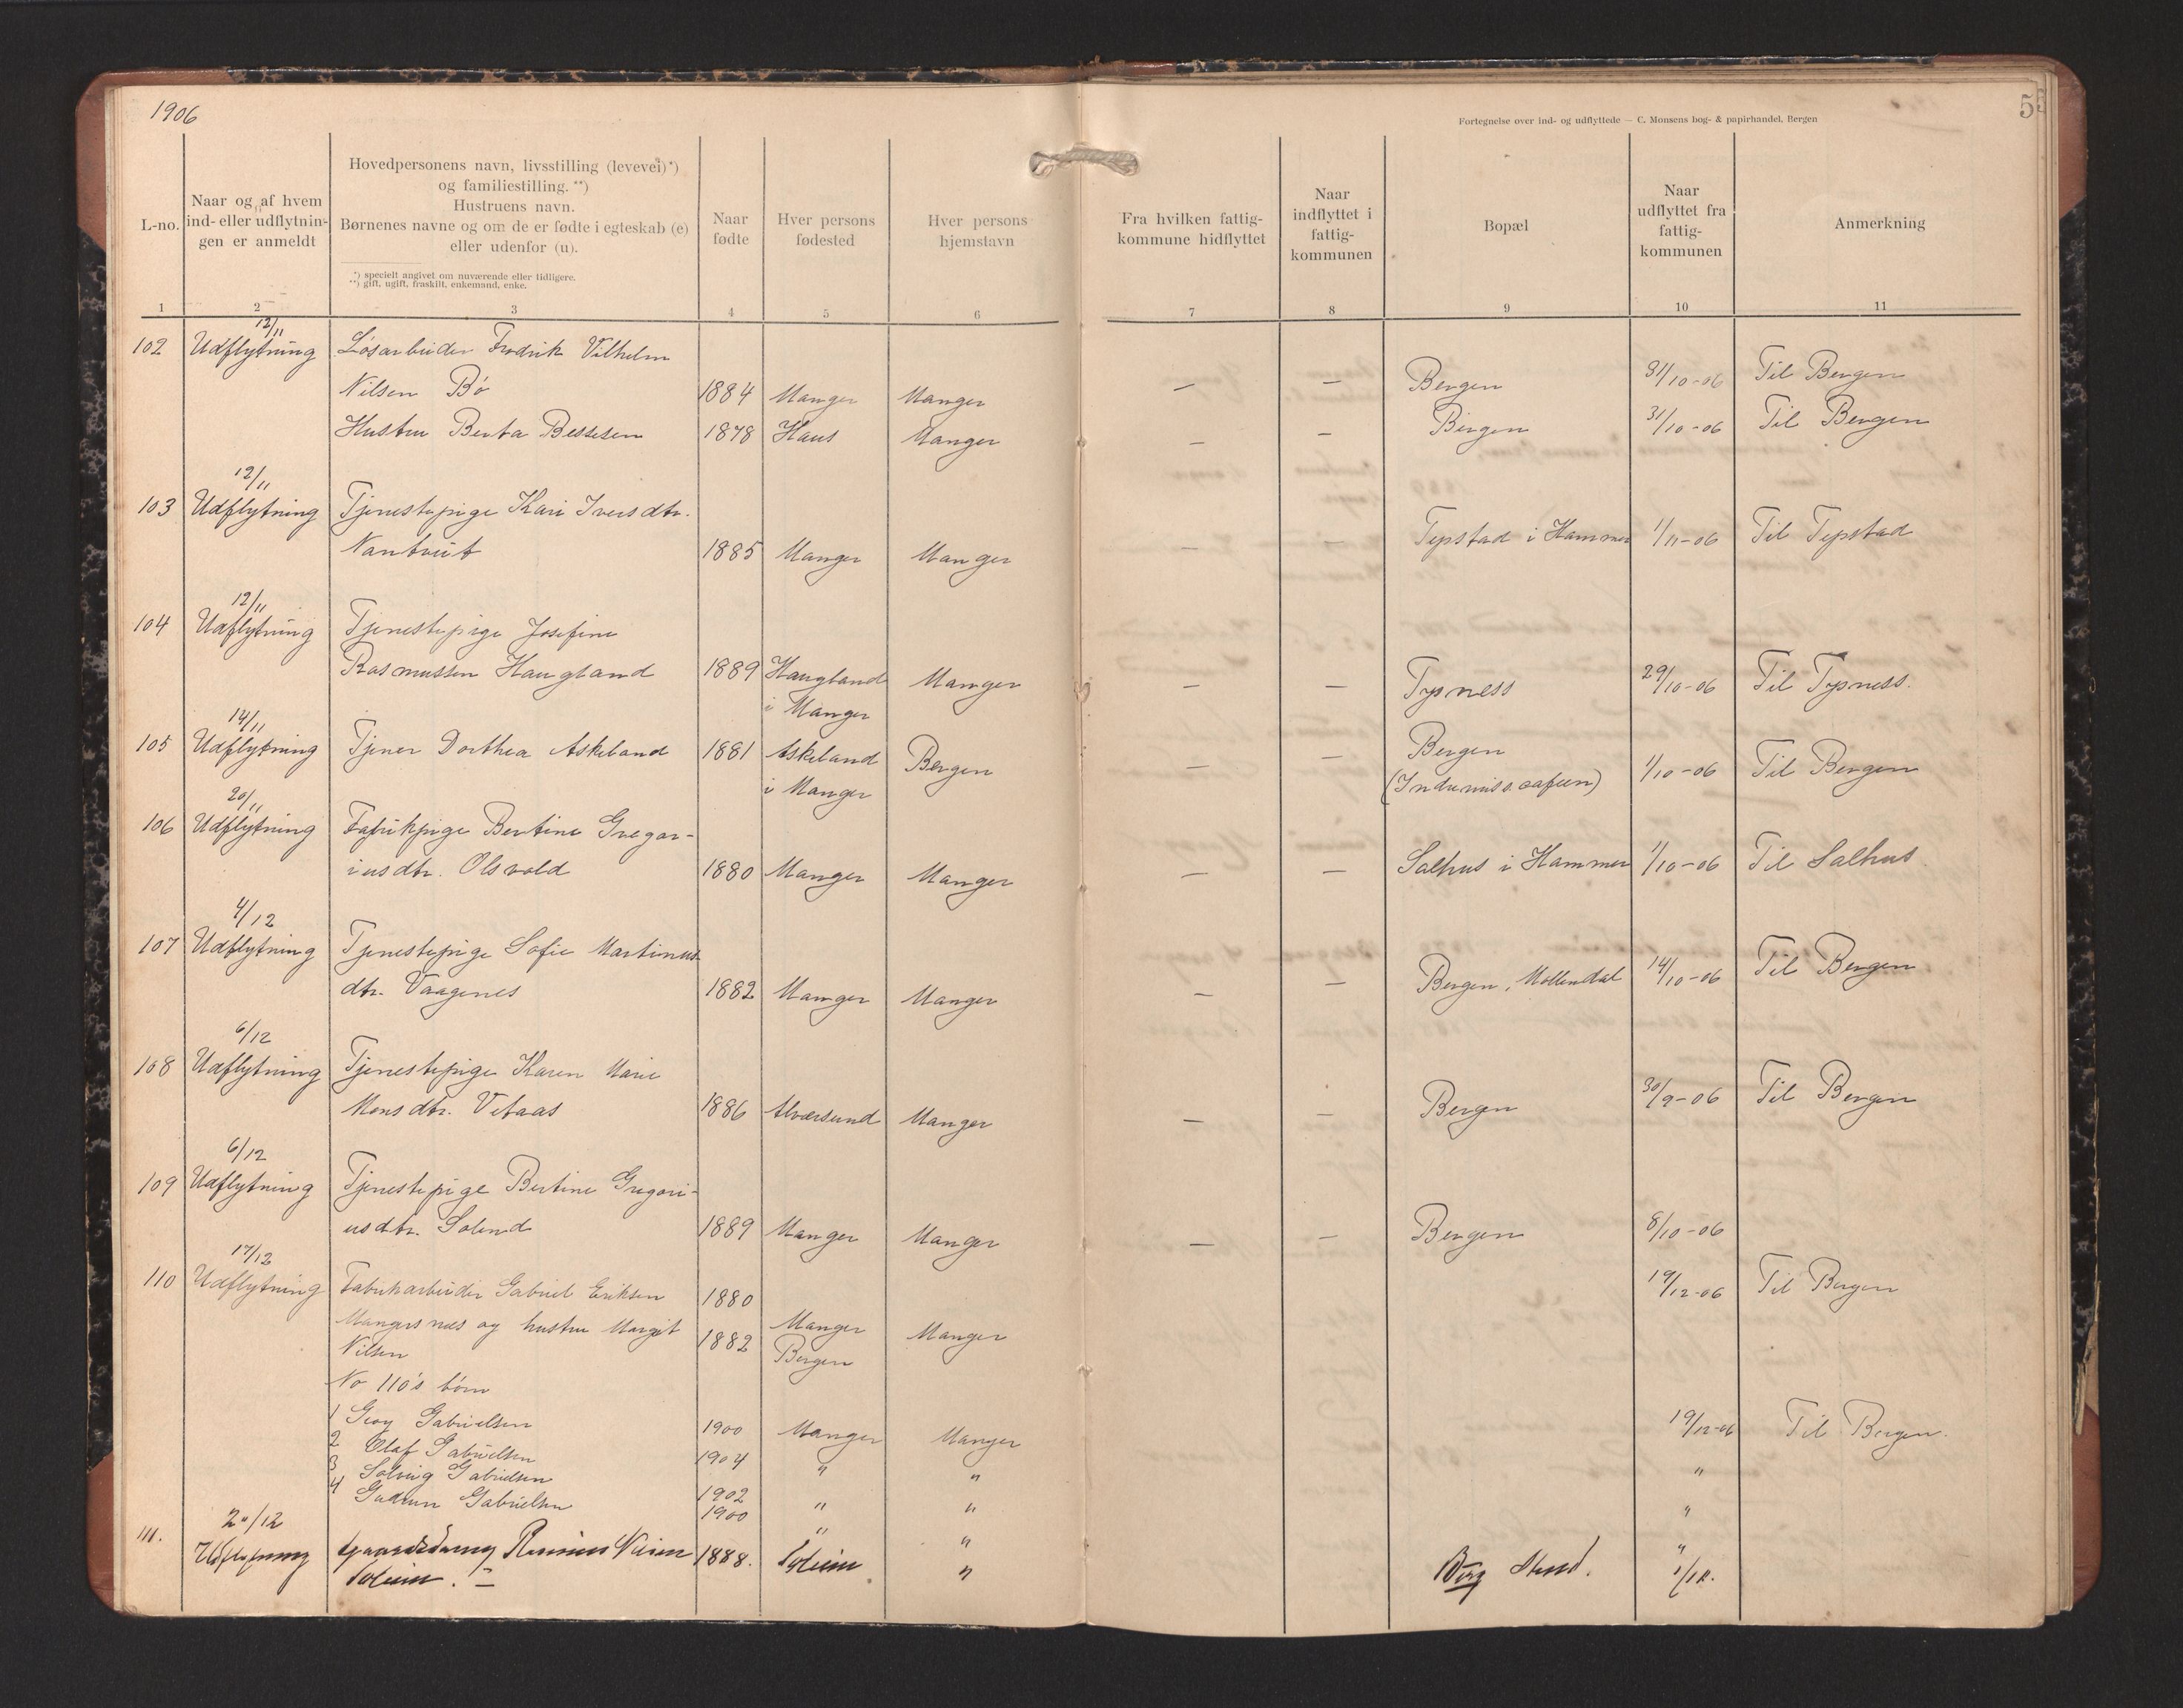 1906
5
Fortegnelse over ind- og udflyttede — C. Monsens bog- & papirhandel, Bergen
L-no.
Naar og af hvem
ind- eller udflytnin-
gen er anmeldt
Hovedpersonens navn, livsstilling (levevei)*)
og familiestilling. **)
Hustruens navn.
Børnenes navne og om de er fødte i egteskab (e)
eller udenfor (u).
*) specielt angivet om nuværende eller tidligere.
**) gift, ugift, fraskilt, enkemand, enke.
Naar
fødte
Hver persons
fødested
Hver persons
hjemstavn
Fra hvilken fattig-
kommune hidflyttet
Naar
indflyttet i
fattig-
kommunen
Bopæl
Naar
udflyttet fra
fattig-
kommunen
Anmerkning
1 2 3 4 5 6 7 8 9 10 11
12/11
102 Udflytning Løsarbeider Fredrik Vilhelm
Nilsen Bø 1884 Manger Manger — — Bergen 31/10-06 Til Bergen
Hustru Berta Bessesen 1878 Haus Manger — — Bergen 31/10-06 Til Bergen
12/11
103 Udflytning Tjenestepige Kari Iversdtr.
Nantveit 1885 Manger Manger — — Tepstad i Hammer 1/11-06 Til Tepstad
12/11
104 Udflytning Tjenestepige Josefine
Rasmussen Haugland 1889 Haugland Manger — — Typness 29/10-06 Til Typness.
i Manger
14/11
105 Udflytning Tjener Dorthea Askeland 1881 Askeland Bergen — — Bergen 1/10-06 Til Bergen
i Manger (Indremiss. cafeen)
20/11
106 Udflytning Fabrikpige Bertine Gregor-
iusdtr. Olsvold 1880 Manger Manger — — Salhus i Hammer 1/10-06 Til Salhus
4/12
107 Udflytning Tjenestepige Sofie Martinus
dtr. Vaagenes 1882 Manger Manger — — Bergen, Møllendal 14/10-06 Til Bergen
6/12
108 Udflytning Tjenestepige Karen Marie
Monsdtr. Vetaas 1886 Alværsund Manger — — Bergen 30/9-06 Til Bergen
6/12
109 Udflytning Tjenestepige Bertine Gregori-
usdtr. Solend 1889 Manger Manger — — Bergen 8/10-06
17/12
110 Udflytning Fabrikarbeider Gabriel Eriksen 1880 19/12-06 Til Bergen
Mangersnes og hustru Margit 1882 Manger Manger
Nilsen Bergen
No 110's børn
1 Georg Gabrielsen 1900 Manger Manger 19/12-06 Til Bergen.
2 Olaf Gabrielsen 1904 " " "
3 Solveig Gabrielsen 1902 " " "
4 Gudrun Gabrielsen 1900 " " "
20/12
111. Udflytning Rasmus 1888. Soleim " 1/12.
Soleim. —